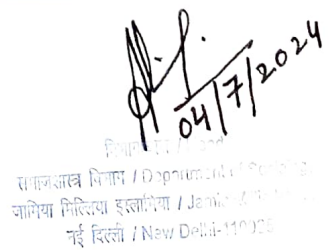 04/7/2024
समाजशास्त्र विभाग / Department of
जामिया मिल्लिया इस्लामिया / Jamia
नई दिल्ली / New Delhi-110025